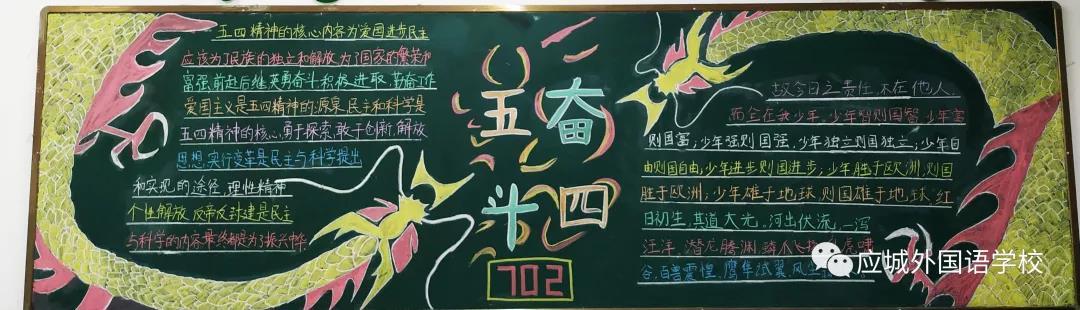 五四精神的核心内容为爱国进步民主
应该为了民族的独立和解放为了国家的繁荣和
富强,前赴后继英勇奋斗积极进取,勤奋工作
爱国主义是五四精神的源泉,民主和科学是
五四精神的核心,勇于探索,敢于创新,解放
思想,实行变革是民主与科学提出
和实现的途径,理性精神
个性解放 反帝反封建是民主
与科学的内容最终都是为了振兴中华
五四
奋斗
702
故今日之责任,不在他人,
而全在我少年,少年智则国智,少年富
则国富;少年强则国强,少年独立则国独立;少年自
由则国自由;少年进步则国进步;少年胜于欧洲,则国
胜于欧洲;少年雄于地球,则国雄于地球,红
日初生,其道大光。河出伏流,一泻
汪洋,潜龙腾渊,鳞爪飞扬,虎啸
谷,百兽震惶,鹰隼试翼,风尘
应城外国语学校